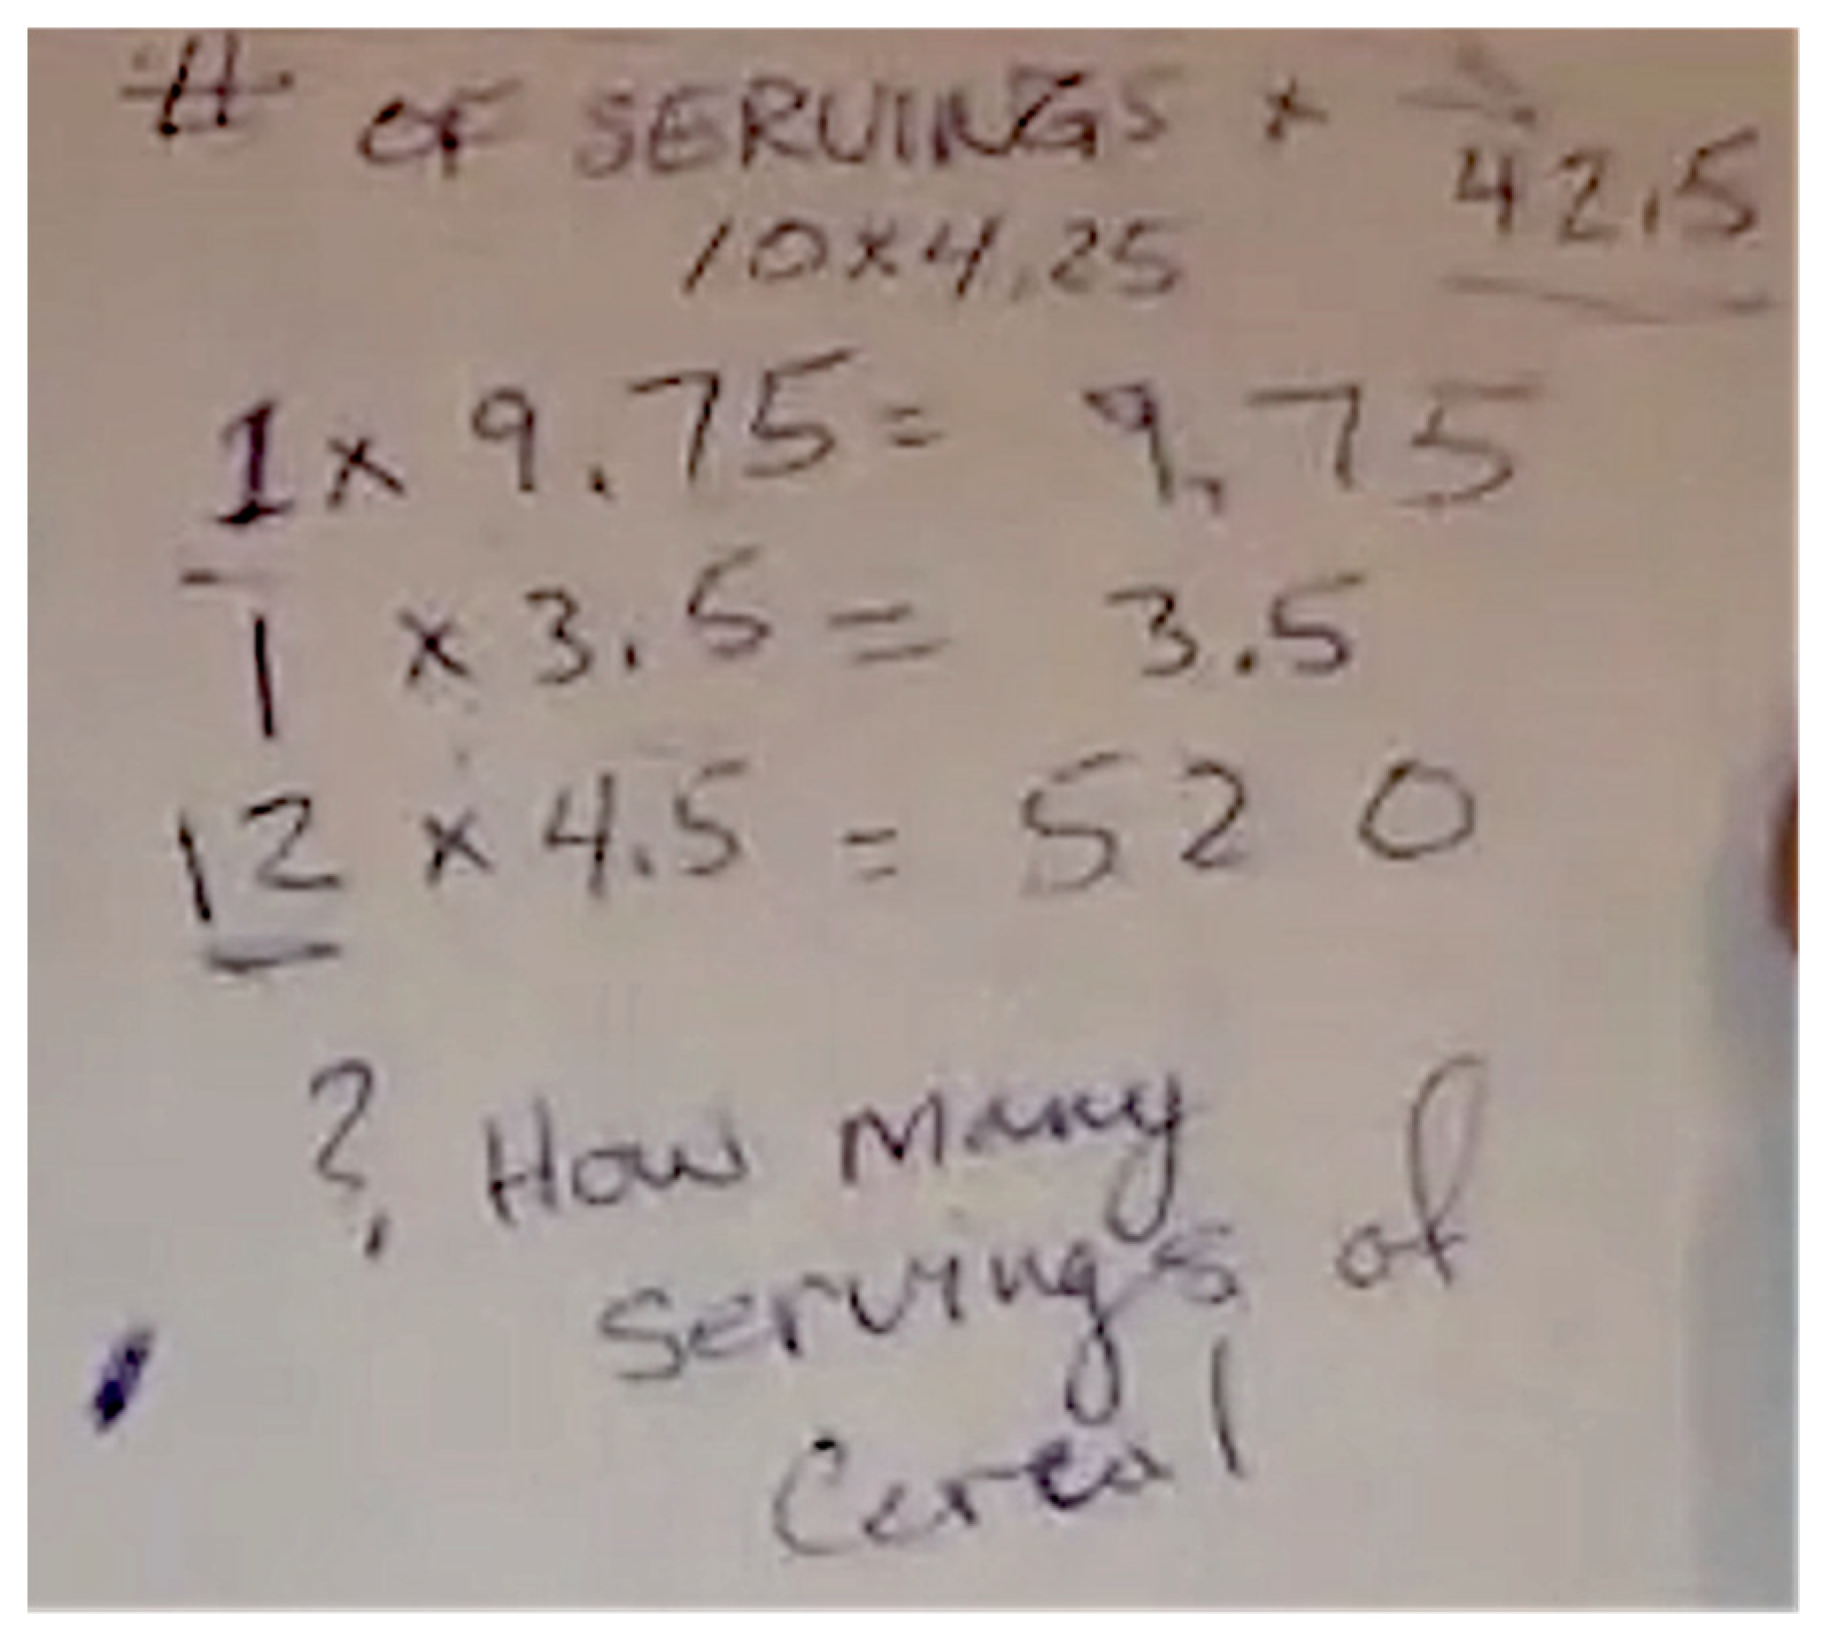 # OF SERVINGS x
42.5
10x4.25
1 x 9.75 = 9.75
1 x 3.5 = 3.5
12 x 4.5 = 52 0
? How Many
servings of
Cereal